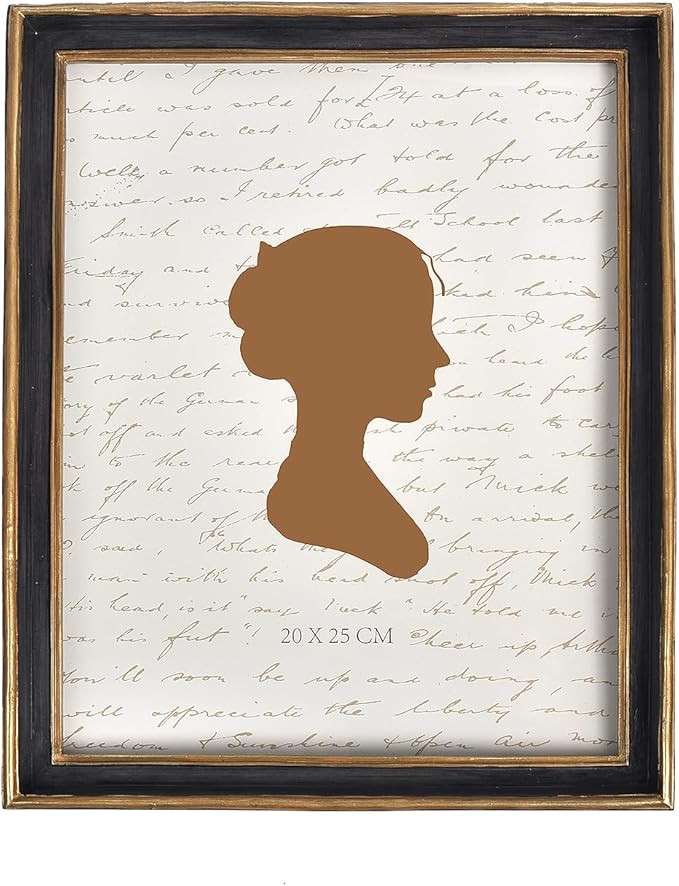 until I gave them
article was sold for £24 at a loss of
so much per cent. What was the cost pr
Well a number got told for the
answer, so I retired badly wounde
Smith called at School last
Friday and had seen
and surviv asked him
remember which I hope
the varlet heard the
ory of the German had his foot
shot off and asked private to car
him to the rear the way a shel
k off the German but Mick w
ignorant of th On arrival, th
, said, "Whats the bringing in
a man with his head shot off, Mick
His head, is it" say Tuck" He told me i
was his fut"! Cheer up Arth
20 X 25 CM
You'll soon be up and doing, an
will appreciate the liberty and
freedom & Sunshine & open air mor